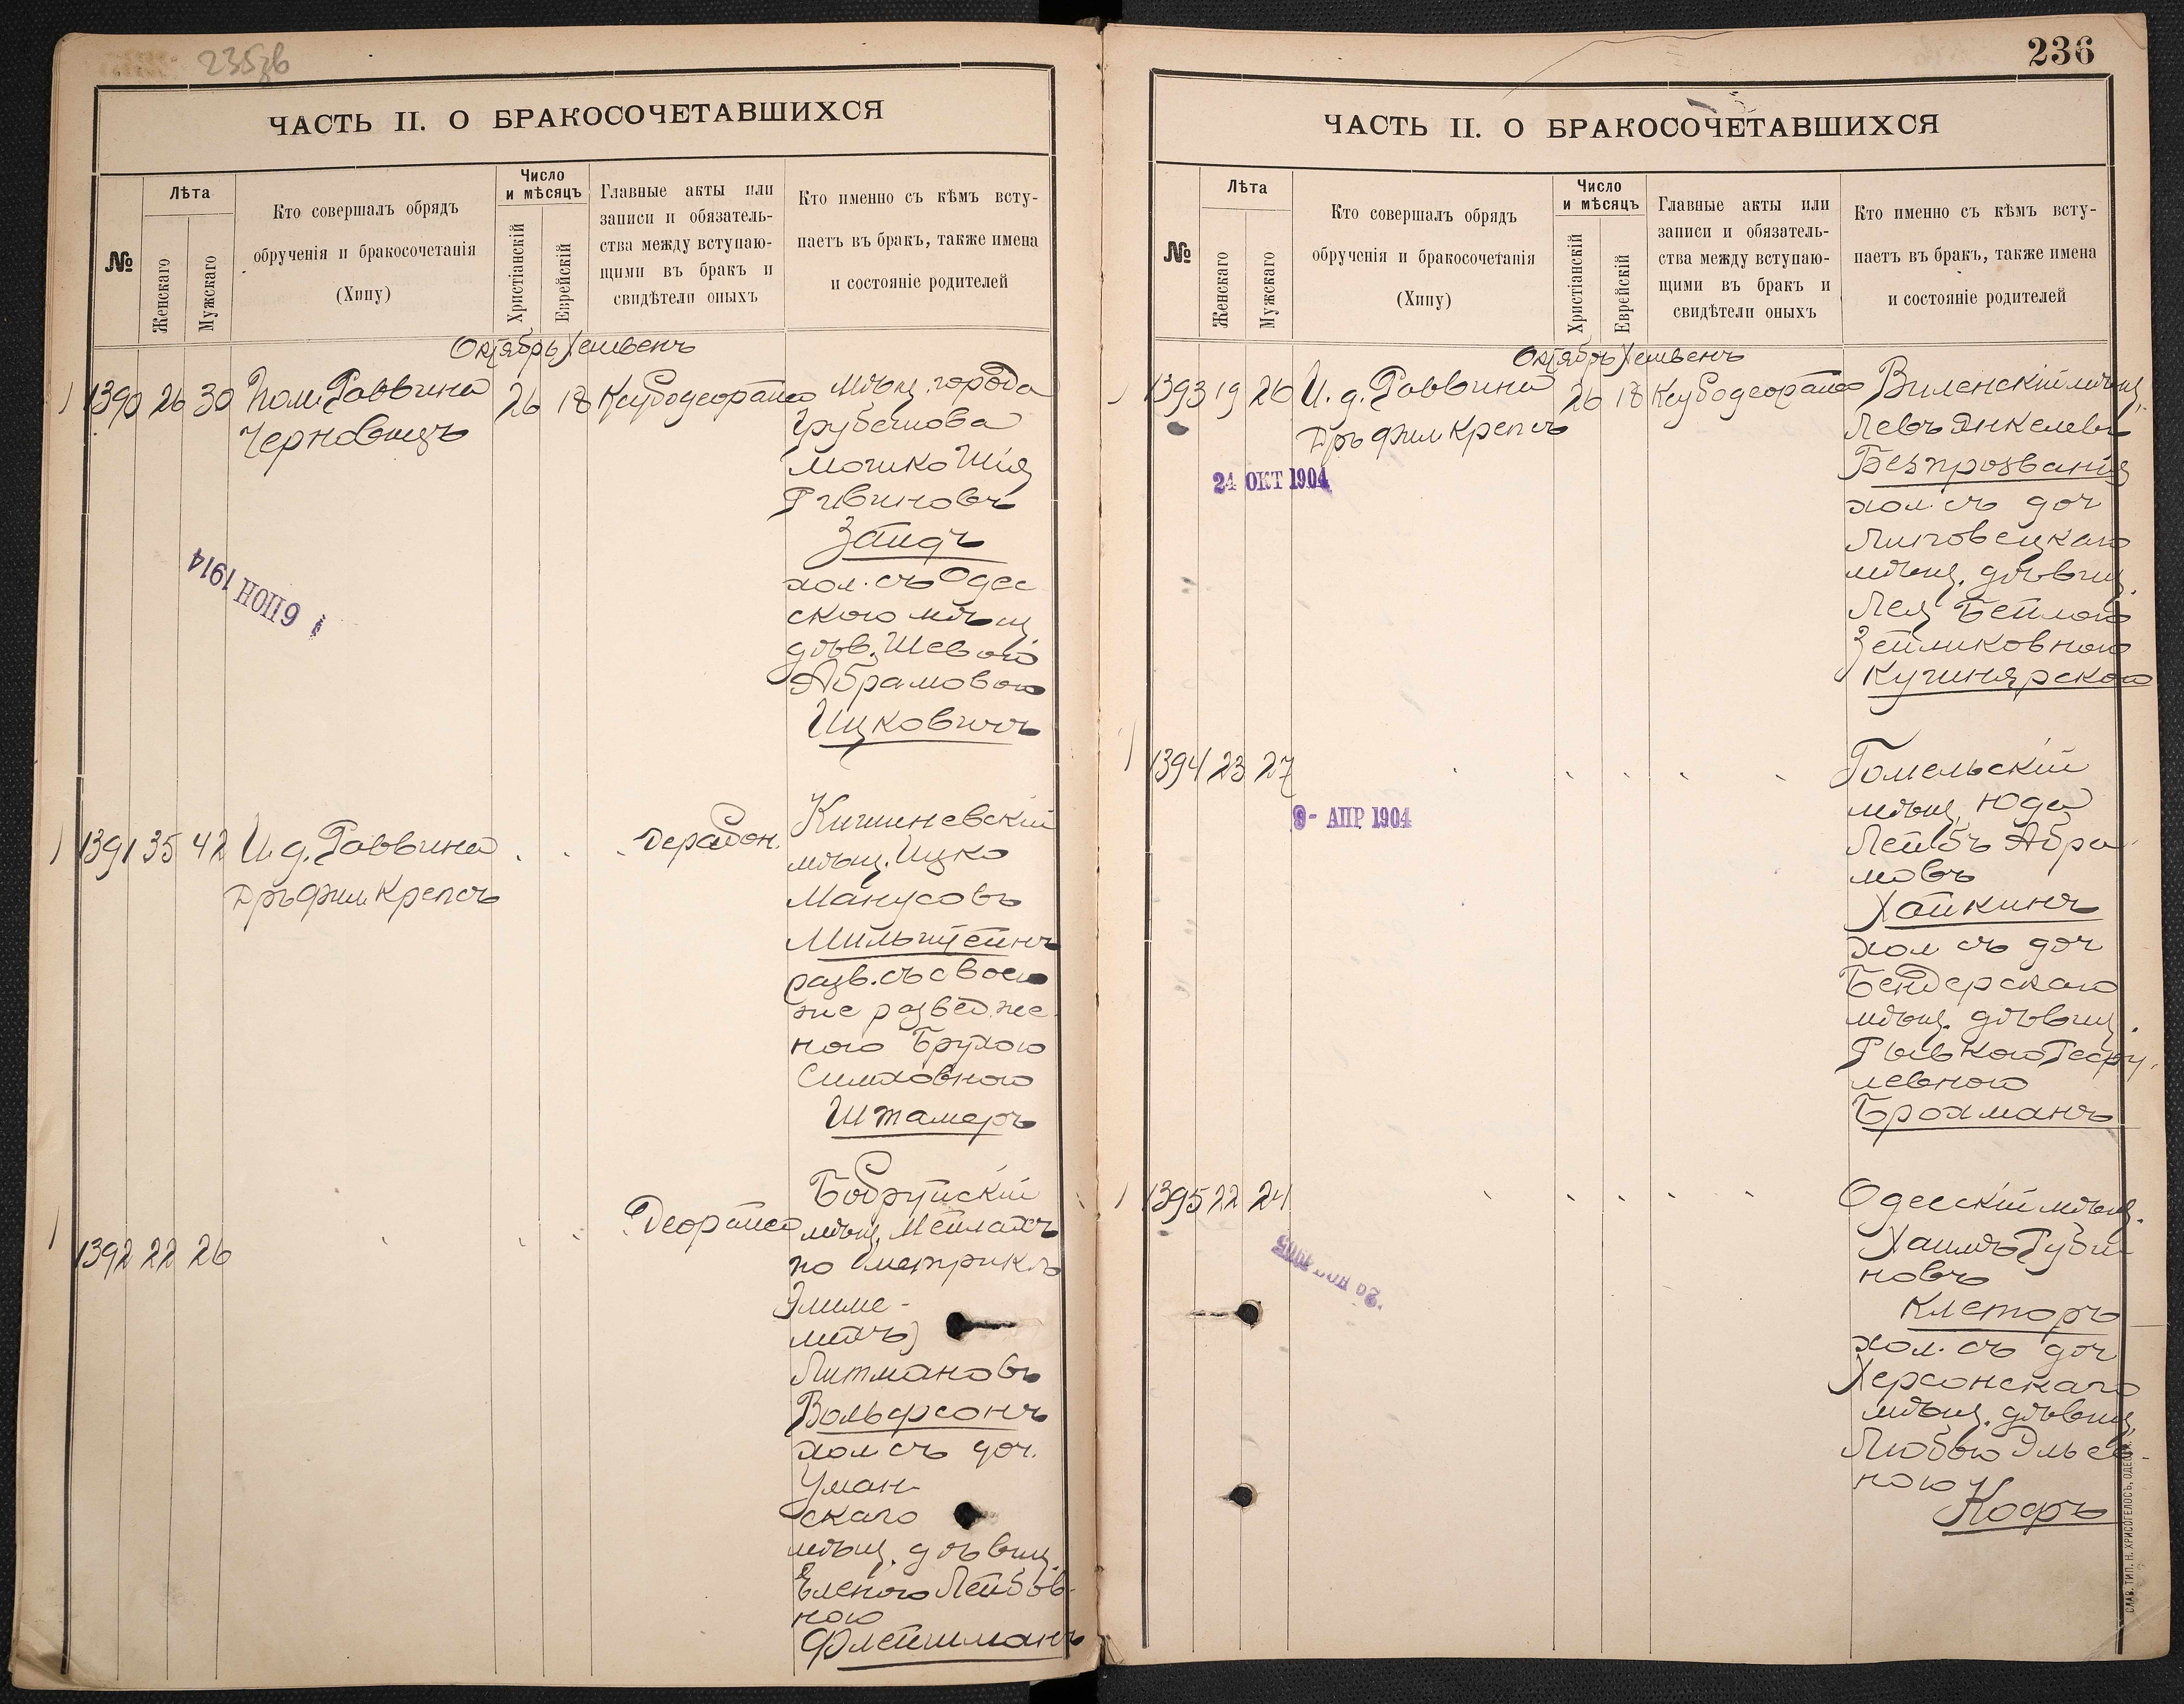 235об
ЧАСТЬ II. О БРАКОСОЧЕТАВШИХСЯ
№
Лѣта
Женскаго
Мужскаго
Кто совершалъ обрядъ
обрученія и бракосочетанія
(Хипу)
Число
и мѣсяцъ
Христіанскій
Еврейскій
Главные акты или
записи и обязатель-
ства между вступаю-
щими въ бракъ и
свидѣтели оныхъ
Кто именно съ кѣмъ всту-
паетъ въ бракъ, также имена
и состояніе родителей
Октябрь Хешвенъ
1390 26 30 Пом. Раввина 26 18
Черновицъ
мѣщ. города
Грубешова
Мошко Шія
Ривиновъ
Зайдъ
хол. съ Одес
скою мѣщ.
дѣв. Шевою
Абрамовою
Ицковичъ
6 ІЮН 1914
1391 35 42 И. д. Раввина
Дръ Фил Крепсъ
Кишиневскій
мѣщ. Ицко
Манусовъ
Мильштейнъ
разв. съ своею
же развед. же
ною Брухою
Симховною
Штамеръ
1392 22 26
Бобруйскій
мѣщ. Мейлахъ
по метрикѣ
Элиме-
лихъ)
Литмановъ
Вольфсонъ
хол съ доч.
Уман-
скаго
мѣщ. дѣвиц.
Еленою Лейбов-
ною
Флейшманъ
236
ЧАСТЬ II. О БРАКОСОЧЕТАВШИХСЯ
№
Лѣта
Женскаго
Мужскаго
Кто совершалъ обрядъ
обрученія и бракосочетанія
(Хипу)
Число
и мѣсяцъ
Христіанскій
Еврейскій
Главные акты или
записи и обязатель-
ства между вступаю-
щими въ бракъ и
свидѣтели оныхъ
Кто именно съ кѣмъ всту-
паетъ въ бракъ, также имена
и состояніе родителей
Октябрь Хешвенъ
1393 19 26 И. д. Раввина 26 18
Дръ Фил Крепсъ
24 ОКТ 1904
Виленскій мѣщ.
Левъ Янкелевъ
Безпрозванія
хол. съ доч
мѣщ. дѣвиц.
Лея Бейлою
Зейликовною
Кушнярскою
1394 23 27
9- АПР 1904
Гомельскій
мѣщ. Юда
Лейбъ Абра
мовъ
Хайкинъ
хол съ доч
Бендерскаго
мѣщ. дѣвиц.
Рывкою
левною
Брохманъ
1395 22 24
Одесскій мѣщ.
Хаимъ Руви
новъ
Клеторъ
хол. съ доч
Херсонскаго
мѣщ. дѣвиц.
Любью
ною
Кофъ
СЛАВ. ТИП. Н. ХРИСОГЕЛОСЪ, ОДЕССА